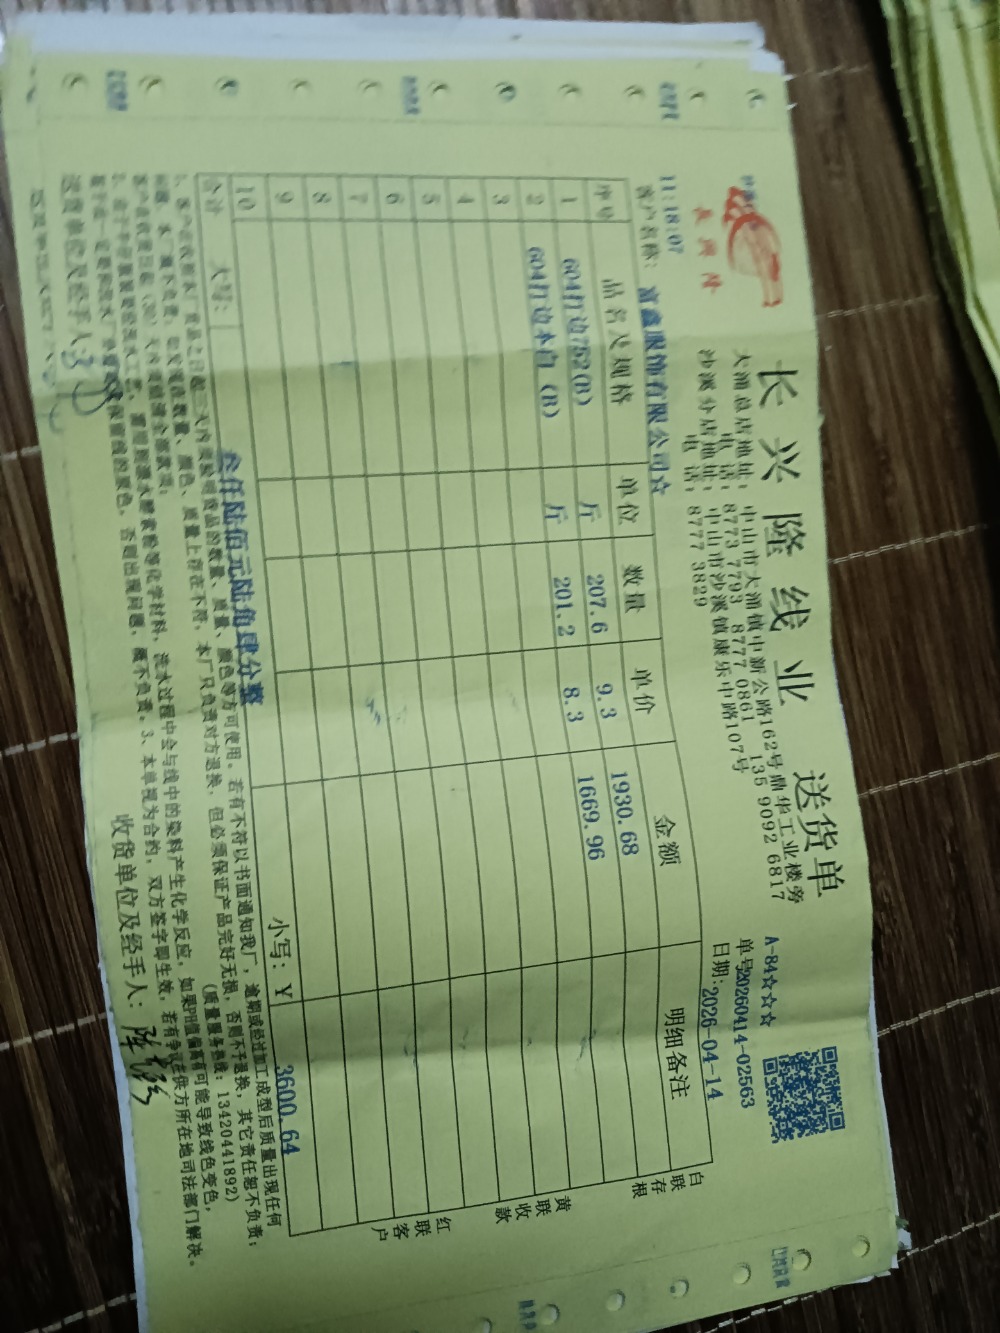 长兴隆
长兴隆线业 送货单
大涌总店地址：中山市大涌镇中新公路162号鼎华工业楼旁
电话：8773 7793 8777 0861 135 9092 6817
沙溪分店地址：中山市沙溪镇康乐中路107号
电话：8777 3829
A-84☆☆☆
单号20260414-02563
日期：2026-04-14
11:18:07
客户名称：富鑫服饰有限公司☆
序号 品名及规格 单位 数量 单价 金额 明细备注
1 604打边752(B) 斤 207.6 9.3 1930.68
2 604打边本白 (B) 斤 201.2 8.3 1669.96
3
4
5
6
7
8
9
10
合计 大写： 叁仟陆佰元陆角肆分整 小写：￥ 3600.64
白联存根
黄联收款
红联客户
若有不符以书面通知我厂，逾期或经过加工成型后质量出现任何
本厂只负责对方退换，但必须保证产品完好无损，否则不予退换，其它责任恕不负责；
(质量服务热线：13420441892)
洗水过程中会与线中的染料产生化学反应，如果PH值偏高有可能导致线色变色，
否则出现问题，概不负责。3、本单视为合约，双方签字即生效，若有争议在供方所在地司法部门解决。
送货单位及经手人：
收货单位及经手人：